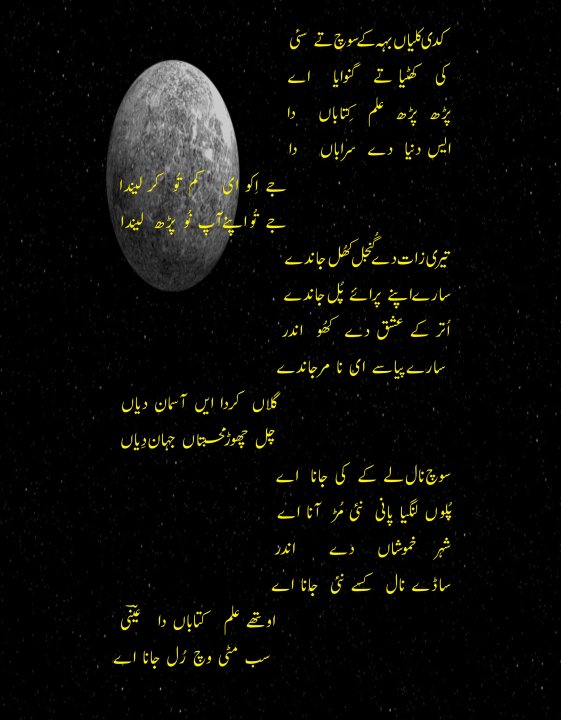 کدی کلیاں بہہ کے سوچ تے سئی
کی کھٹیا تے گنوایا اے
پڑھ پڑھ علم کِتاباں دا
ایس دنیا دے سراباں دا
جے اِکو ای کم تُو کر لیندا
جے تُو اپنے آپ نُو پڑھ لیندا
تیری زات دے گُنجل کھُل جاندے
سارے اپنے پرائے پُل جاندے
اُتر کے عشق دے کھُو اندر
سارے پیاسے ای نا مر جاندے
گلاں کردا ایں آسمان دیاں
چل چھوڑ محبتاں جہان دِیاں
سوچ نال لے کے کی جانا اے
پُلوں لنگیا پانی نئی مُڑ آنا اے
شہر خموشاں دے اندر
ساڈے نال کسے نئی جانا اے
اوتھے علم کتاباں دا عینی
سب مٹی وچ رُل جانا اے